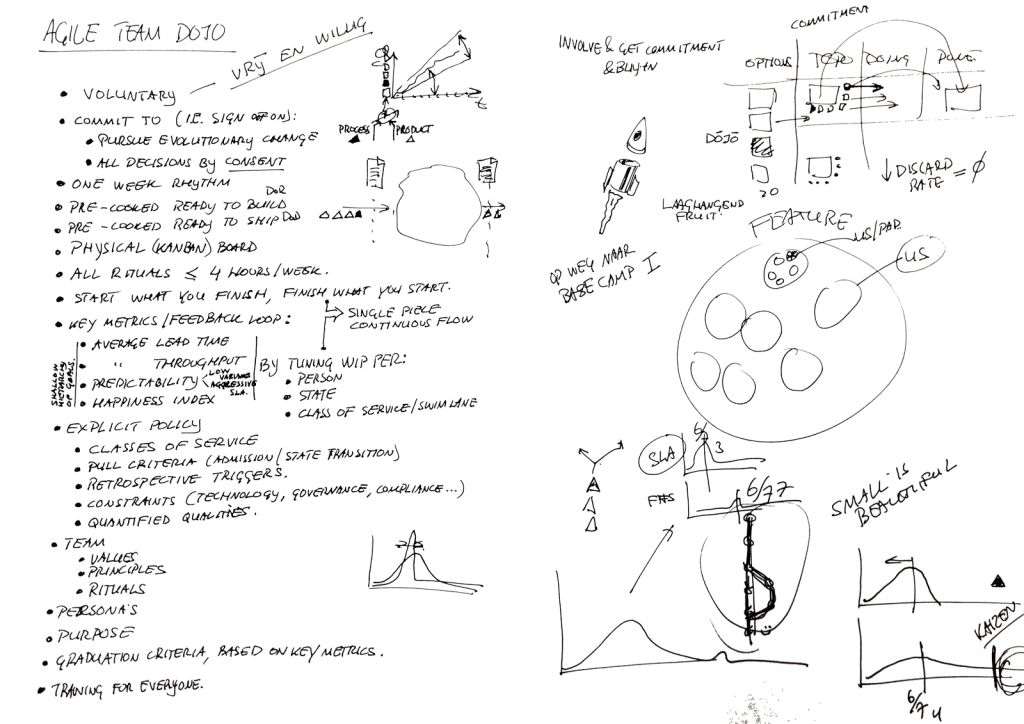 AGILE TEAM DOJO
VRY EN WILLIG
• VOLUNTARY
• COMMIT TO (I.E. SIGN OFF ON):
• PURSUE EVOLUTIONARY CHANGE
• ALL DECISIONS BY CONSENT
• ONE WEEK RHYTHM
• PRE-COOKED READY TO BUILD DOR
• PRE-COOKED READY TO SHIP DOD
• PHYSICAL (KANBAN) BOARD
• ALL RITUALS ≤ 4 HOURS/WEEK.
• START WHAT YOU FINISH, FINISH WHAT YOU START.
SINGLE PIECE
CONTINUOUS FLOW
• KEY METRICS/FEEDBACK LOOP:
• AVERAGE LEAD TIME
• " THROUGHPUT
• PREDICTABILITY
LOW
VARIANCE
AGGRESSIVE
SLA.
• HAPPINESS INDEX
SHALLOW
HIERARCHY
OF GOALS.
BY TUNING WIP PER:
• PERSON
• STATE
• CLASS OF SERVICE/SWIMLANE
• EXPLICIT POLICY
• CLASSES OF SERVICE
• PULL CRITERIA (ADMISSION/STATE TRANSITION)
• RETROSPECTIVE TRIGGERS.
• CONSTRAINTS (TECHNOLOGY, GOVERNANCE, COMPLIANCE...)
• QUANTIFIED QUALITIES.
• TEAM
• VALUES
• PRINCIPLES
• RITUALS
• PERSONA'S
• PURPOSE
• GRADUATION CRITERIA, BASED ON KEY METRICS.
• TRAINING FOR EVERYONE.
t
PROCESS PRODUCT
INVOLVE & GET COMMITMENT
& BUY-IN
COMMITMENT
OPTIONS TODO DOING DONE
DŌJŌ
20
↓ DISCARD
RATE = Ø
LAAGHANGEND
FRUIT.
OP WEG NAAR
BASE CAMP I
FEATURE
US/PAR
US
SLA
6/
3
6/77
SMALL IS
BEAUTIFUL
KAIZEN